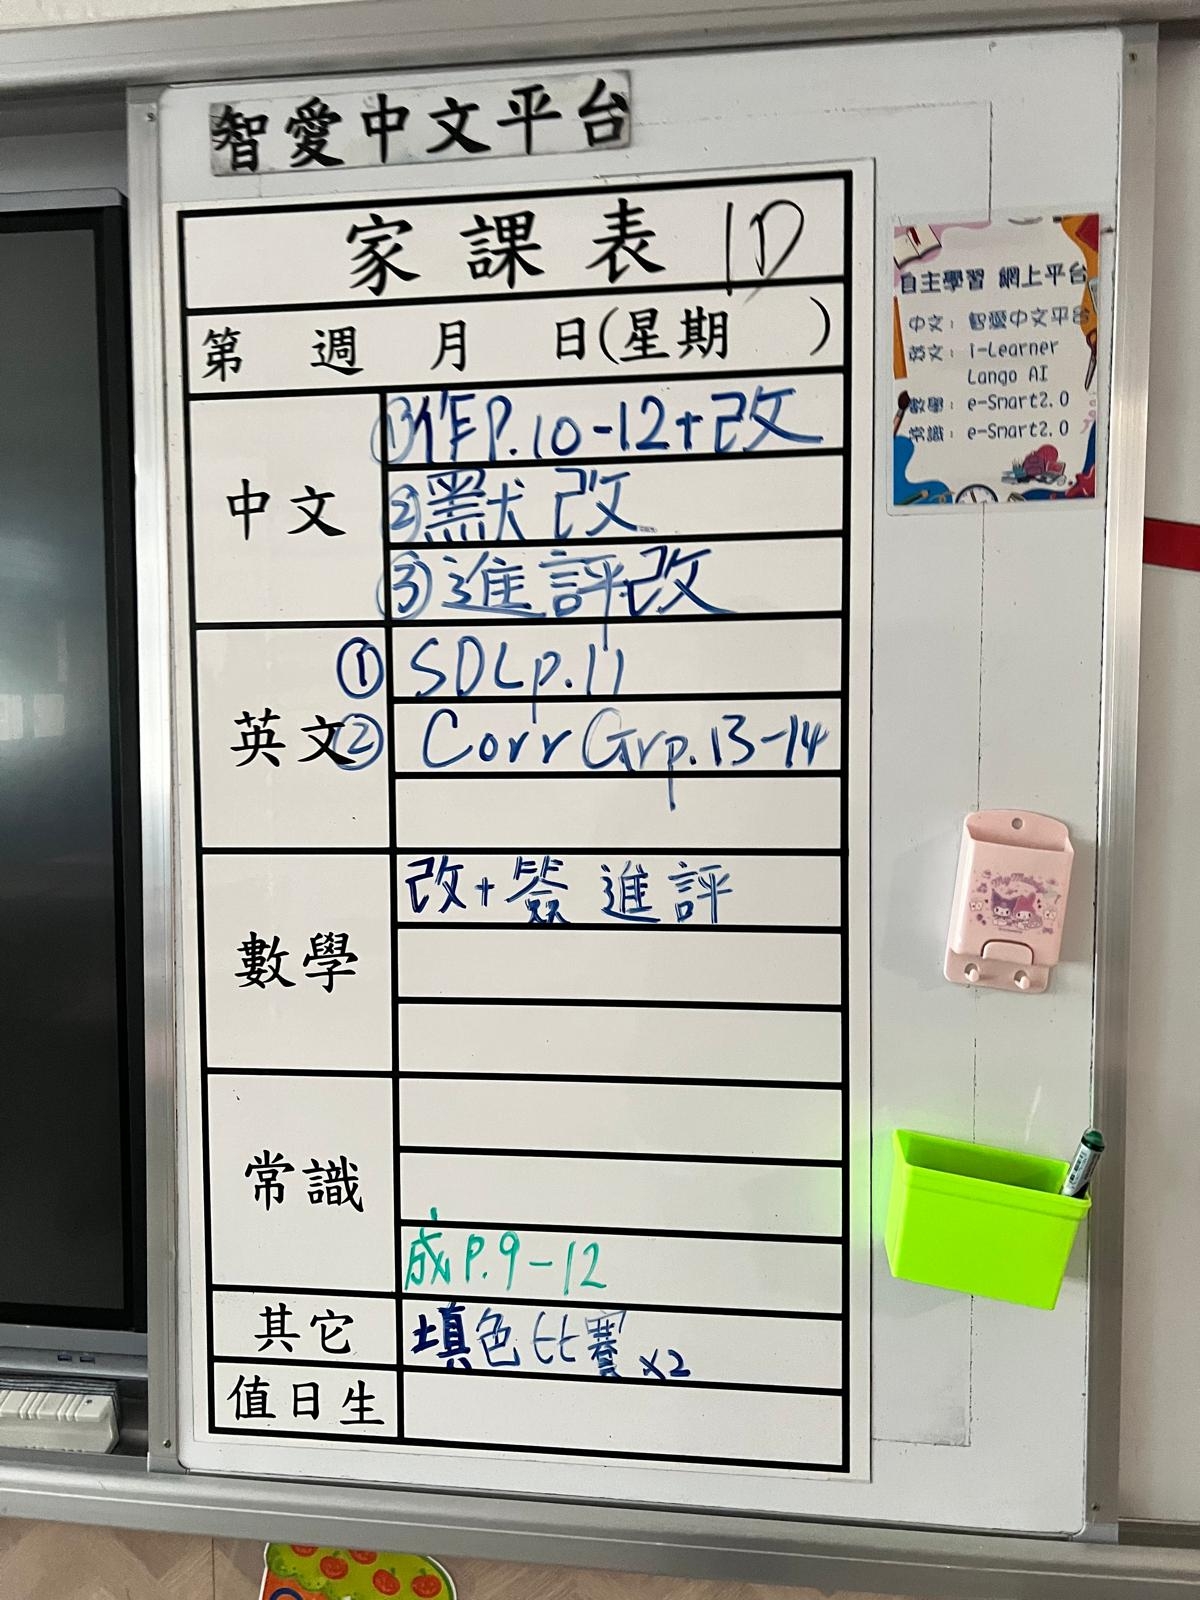 智愛中文平台
家課表 1D
第 週 月 日(星期 )
中文
①作P.10-12+改
②默改
③進評改
英文
① SDL p.11
② Corr Gr p.13-14
數學
改+簽 進評
常識
成P.9-12
其它
填色比賽 x2
值日生
自主學習 網上平台
中文： 智愛中文平台
英文： i-Learner
Lango AI
數學： e-Smart2.0
常識： e-Smart2.0
My Melody